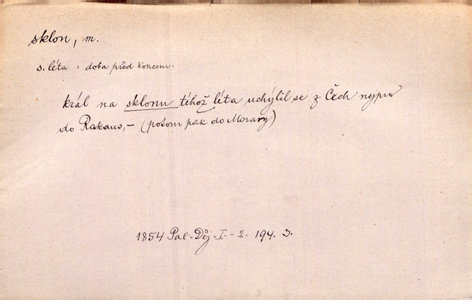 sklon, m.
s. léta = doba před koncem.
král na sklonu téhož léta uchýlil se z Čech nejprv
do Rakous, – (potom pak do Moravy)
1854 Pal. Děj. I-2. 194. S.